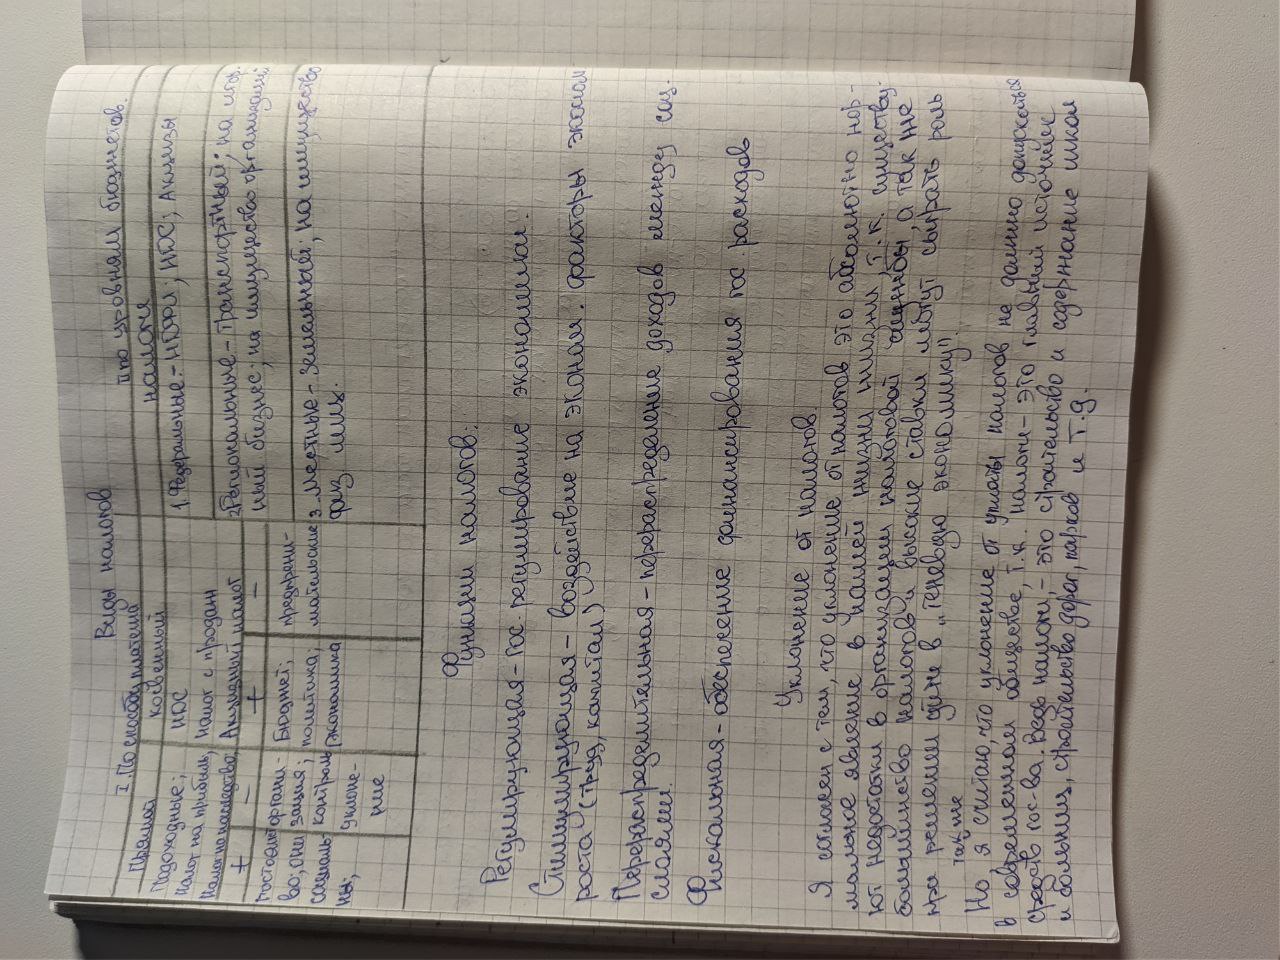 Виды налогов
I. По способу платежа
II по уровням бюджетов.
Прямой
косвенный
налоги
Подоходные;
НДС
1. Федеральные - НДФЛ; НДС; Акцизы
Налог на прибыль;
Налог с продаж
2. Региональные - Транспортный; на игор-
Налог на наследство
Акцизный налог
ный бизнес; на имущество организаций
+
-
+
-
3. Местные - Земельный; на имущество
физ лиц.
постоянс-
во; они
социаль-
ны;
органи-
зация;
контроль
уклоне-
ние
Бюджет;
политика;
экономика
предприни-
мательские
Функции налогов:
Регулирующая - гос. регулирование экономики.
Стимулирующая - воздействие на эконом. факторы эконом
роста (труд, капитал)
Перераспределительная - перераспределение доходов между соц.
слоями.
Фискальная - обеспечение финансирования гос. расходов
Уклонение от налогов.
Я согласен с тем, что уклонение от налогов это абсолютно нор-
мальное явление в нашей жизни жизни т.к. существу-
ют недостатки в организации налоговой, а так же
большинство налогов и высокие ставки могут сыграть роль
при решении уйти в "теневую экономику".
также
Но я считаю, что уклонение от уплаты налогов не должно допускаться
в современном обществе, т.к. налоги - это главный источник
средств гос-ва. Ведь налоги, - это строительство и содержание школ
и больниц, строительство дорог, парков и т.д.